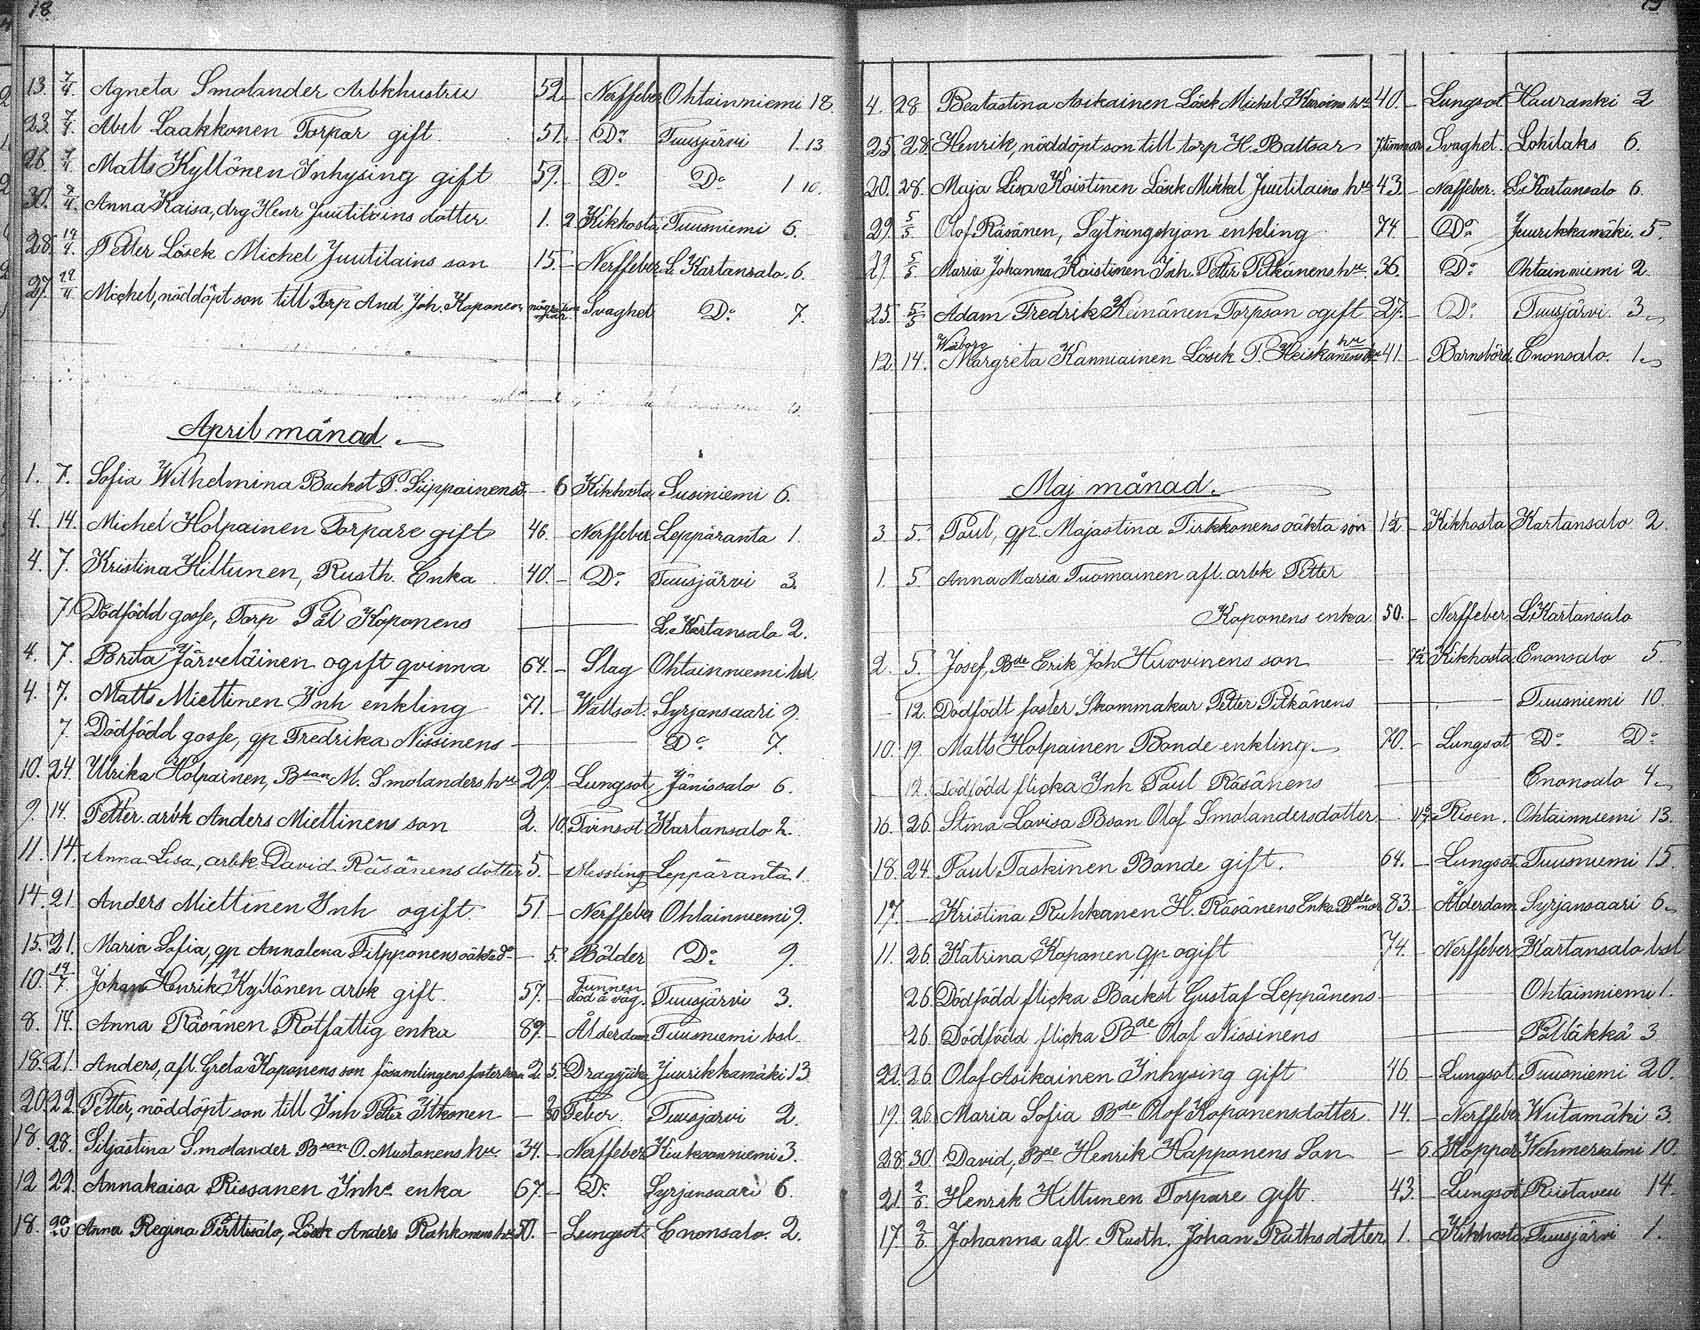 18
13. 7/4. Agneta Smolander Arbkhustru 52 – Nerffeber Ohtainniemi 18
23. 7/4. Abel Laakkonen Torpar gift 51. – Do Tuusjärvi 1.13
26. 7/4. Matts Kyllönen Inhysing gift 59. – Do Do 1 10.
30. 7/4. Anna Kaisa, drg Henr Juutilains dotter 1. 2 Kikhosta Tuusniemi 6.
28. 14/4. Petter Lösek Michel Juutilains son 15. – Nerffeber L. Kartansalo. 6.
27. Michel, nöddöpt son till Torp And. Joh. Koponen Svaghet Do 7.
April månad.
1. 7. Sofia Wilhelmina Backst P. Siippainens d. – 6 Kikhosta Susiniemi 6.
4. 14. Michel Holpainen Torpare gift 46. – Nerffeber Leppäranta 1.
4. 7. Kristina Hiltunen, Rusth. Enka 40. – Do Tuusjärvi 3.
7. Dödfödd gosse, Torp Pål Koponens — L. Kartansalo 2.
4. 7. Brita Järveläinen ogift qvinna 64. – Slag Ohtainniemi bsl
4. 7. Matts Miettinen Inh enkling 71. – Wattsot. Syrjansaari 9.
7. Dödfödd gosse, gp Fredrika Nissinens — Do 7.
10. 24. Ulrika Holpainen, Bson M. Smolanders hu 29. – Lungsot Jänissalo 6.
9. 14. Petter arbk Anders Miettinens son 2. 10 Tvinsot Kartansalo 2.
11. 14. Anna Lisa, arbk David Räsänens dotter 5. – Messling Leppäranta 1.
14. 21. Anders Miettinen Inh ogift. 51 – Nerffeber Ohtainniemi 9.
15. 21. Maria Sofia, gp Annalena Filpponens oäkta dr – 5. Bölder Do 9.
10. 14/7. Johan Henrik Kyllönen arbk gift. 57. – Funnen död å väg. Tuusjärvi 3.
8. 14. Anna Räsänen Rotfattig enka 89. – Ålderdom Tuusniemi bsl.
18. 21. Anders, afl. Greta Koponens son församlingens foster 2. 5. Dragsjuka Juurikkamäki 13
20. 22. Petter, nöddöpt son till Inh Petter Itkonen – Feber. Tuusjärvi 2.
18. 28. Siljastina Smolander Bson O. Mustonens hu 34. – Nerffeber Kiukoonniemi 3.
12 22. Annakaisa Rissanen Inhs enka 67. – Do Syrjansaari 6.
18. Anna Regina Pirttisalo, Lösk Anders Rahkonens hu 50. – Lungsot Enonsalo. 2.
19
4. 28 Beatastina Asikainen Lösek Michel hu 40. – Lungsot. Hauranki 2
25. 28. Henrik, nöddöpt son till torp H. Baltsar 7 timmar Svaghet. Lohilaks 6.
20. 28. Maja Lisa Koistinen Lösk Mikkel Juutilains hu 43. – Nerffeber. L. Kartansalo 6.
29. 5/5 Olof Räsänen, Sytningshjon enkling 74. – Do Juurikkamäki. 5.
21. 5/5 Maria Johanna Koistinen Inh. Petter Pitkänens hu. 36. – Do Ohtainniemi 2.
25. 5/5 Adam Fredrik Keinänen Torpson ogift 27. – Do Tuusjärvi. 3
12. 14. Wiborg Margreta Kanniainen Lösek P. Heiskanens hu 41 – Barnsbörd Enonsalo. 1
Maj månad.
3 5. Paul, gp. Majastina Tirkkonens oäkta son 1½ – Kikhosta Kartansalo 2.
1. 5 Anna Maria Tuomainen afl. arbk Petter
Koponens enka 50. – Nerffeber L. Kartansalo
2. 5. Josef, Bde Erik Joh Huovinens son – ½ Kikhosta Enonsalo 5.
– 12. Dödfödt foster Skommakar Petter Pitkänens — Tuusniemi 10.
10. 19. Matts Holpainen Bonde enkling. 70. – Lungsot Do Do
12. Dödfödd flicka Inh Paul Räsänens — Enonsalo 4.
16. 26. Stina Lovisa Bson Olof Smolandersdotter – Risen. Ohtainniemi 13.
18. 24. Paul Taskinen Bonde gift. 64. – Lungsot Tuusniemi 15.
17. – Kristina Ruhkanen H. Räsänens Enka Bdemor 83. – Ålderdom Syrjansaari 6.
11. 26. Katrina Koponen gp ogift 74. – Nerffeber Kartansalo bsl
26. Dödfödd flicka Backst Gustaf Leppänens — Ohtainniemi 1.
26. Dödfödd flicka Bde Olof Nissinens — Pölläkkä 3.
22. 26. Olof Asikainen Inhysing gift 46 – Lungsot. Tuusniemi 20.
19. 26. Maria Sofia Bde Olof Koponensdotter 14. – Nerffeber Wiitamäki 3.
28. 30 David, Bde Henrik Happonens Son – 6. Koppor Wehmersalmi 10.
21. 2/6. Henrik Hiltunen Torpare gift. 43. – Lungsot Riistavesi 14.
17. 2/6. Johanna afl. Rusth. Johan Ruthsdotter 1. – Kikhosta Tuusjärvi 1.